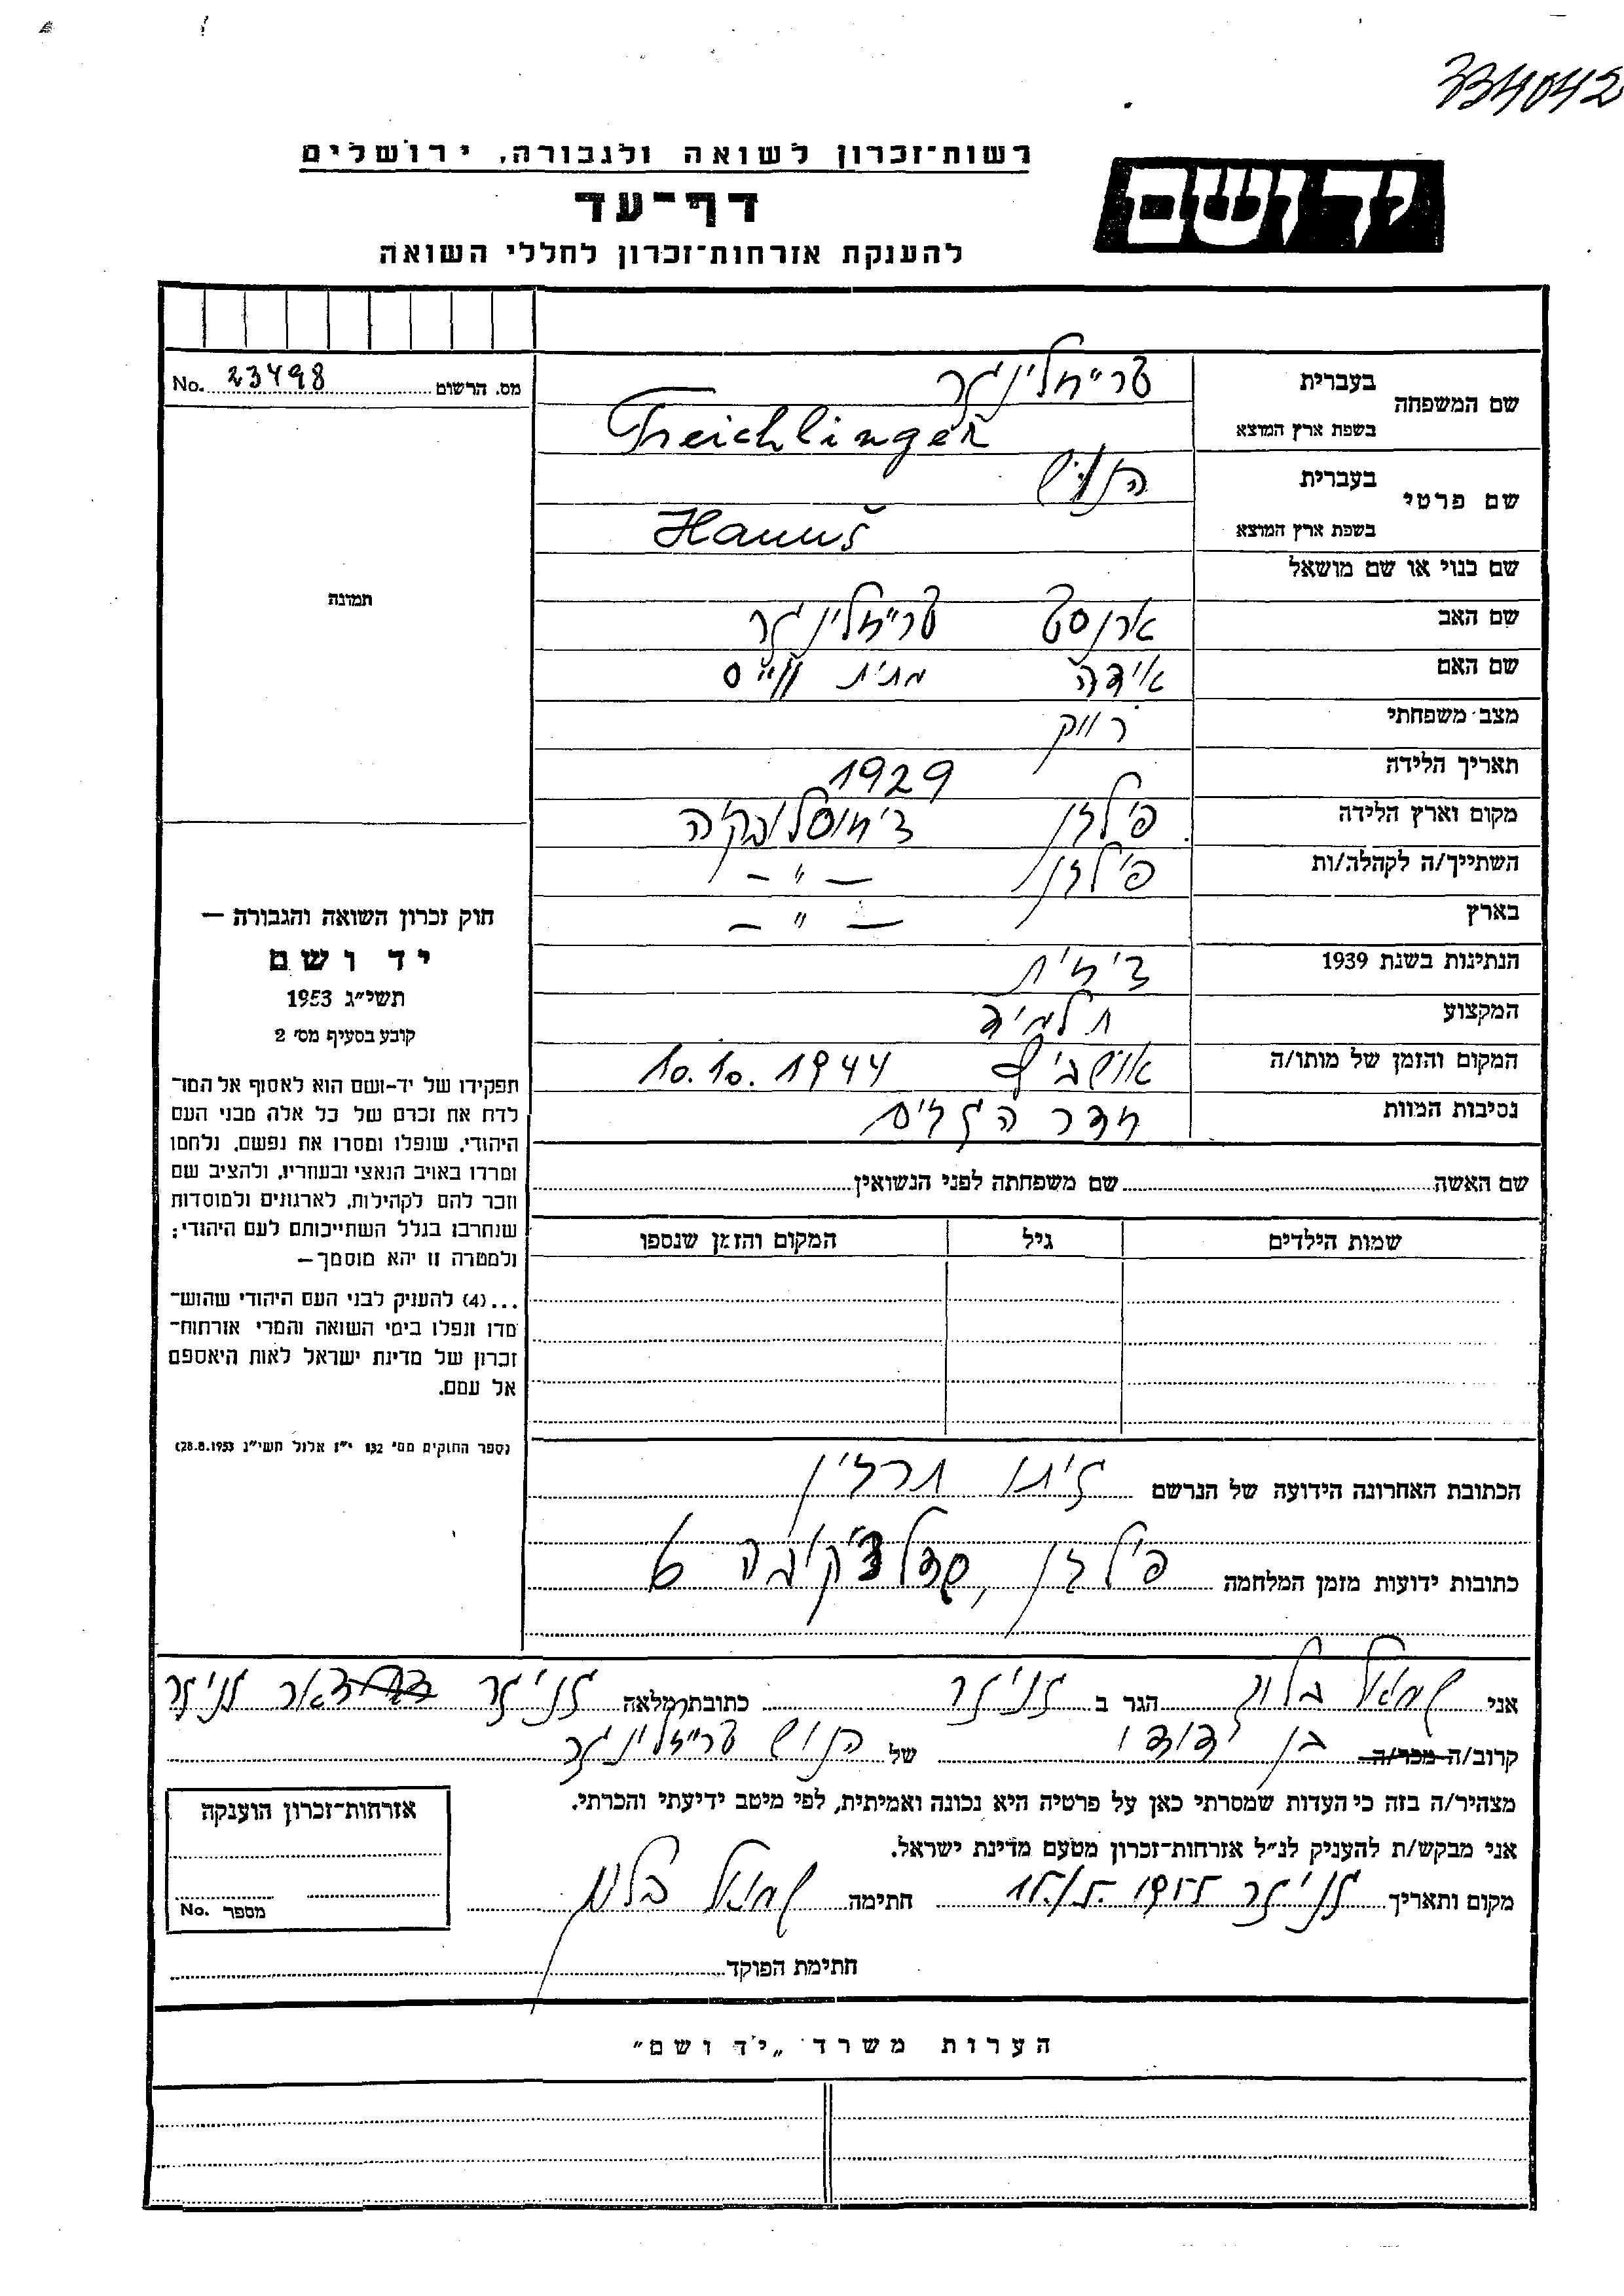 334042
רשות־זכרון לשואה ולגבורה, ירושלים
יד ושם
דף־עד
להענקת אזרחות־זכרון לחללי השואה
מס. הרשום 23498 No.
שם המשפחה בעברית טרייכלינגר
בשפת ארץ המוצא Treichlinger
שם פרטי בעברית הנוש
בשפת ארץ המוצא Hanuš
שם כנוי או שם מושאל
שם האב ארנסט טרייכלינגר
שם האם אידה מבית ווייס
מצב משפחתי רווק
תאריך הלידה 1929
מקום וארץ הלידה פילזן צ'כוסלובקיה
השתייך/ה לקהלה/ות פילזן — " —
בארץ — " —
הנתינות בשנת 1939 צ'כית
המקצוע תלמיד
המקום והזמן של מותו/ה אושביץ 10.10.1944
נסיבות המוות חדר הגזים
תמונה
חוק זכרון השואה והגבורה —
יד ושם
תשי״ג 1953
קובע בסעיף מס׳ 2
תפקידו של יד־ושם הוא לאסוף אל המו־
לדת את זכרם של כל אלה מבני העם
היהודי, שנפלו ומסרו את נפשם, נלחמו
ומרדו באויב הנאצי ובעוזריו, ולהציב שם
וזכר להם לקהילות, לארגונים ולמוסדות
שנחרבו בגלל השתייכותם לעם היהודי;
ולמטרה זו יהא מוסמך —
...(4) להעניק לבני העם היהודי שהוש־
מדו ונפלו בימי השואה והמרי אזרחות־
זכרון של מדינת ישראל לאות היאספם
אל עמם.
(ספר החוקים מס׳ 132 י״ז אלול תשי״ג 28.8.1953)
שם האשה שם משפחתה לפני הנשואין
שמות הילדים גיל המקום והזמן שנספו
הכתובת האחרונה הידועה של הנרשם גיתו תרזין
כתובות ידועות מזמן המלחמה פילזן, 6
אני שמואל בלום הגר ב גניגר כתובת מלאה גניגר דאר גניגר
קרוב/ה מכר/ה בן דודו של הנוש טרייכלינגר
מצהיר/ה בזה כי העדות שמסרתי כאן על פרטיה היא נכונה ואמיתית, לפי מיטב ידיעתי והכרתי.
אני מבקש/ת להעניק לנ״ל אזרחות־זכרון מטעם מדינת ישראל.
מקום ותאריך גניגר חתימה שמואל בלום
אזרחות־זכרון הוענקה
מספר No.
חתימת הפוקד
הערות משרד „יד ושם״